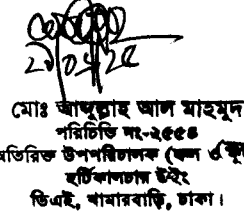 ২৭/০৪/২৫
মোঃ আব্দুল্লাহ আল মাহমুদ
পরিচিতি নং-২৫৫৪
অতিরিক্ত উপপরিচালক (ফল ও ফুল)
হর্টিকালচার উইং
ডিএই, খামারবাড়ি, ঢাকা।